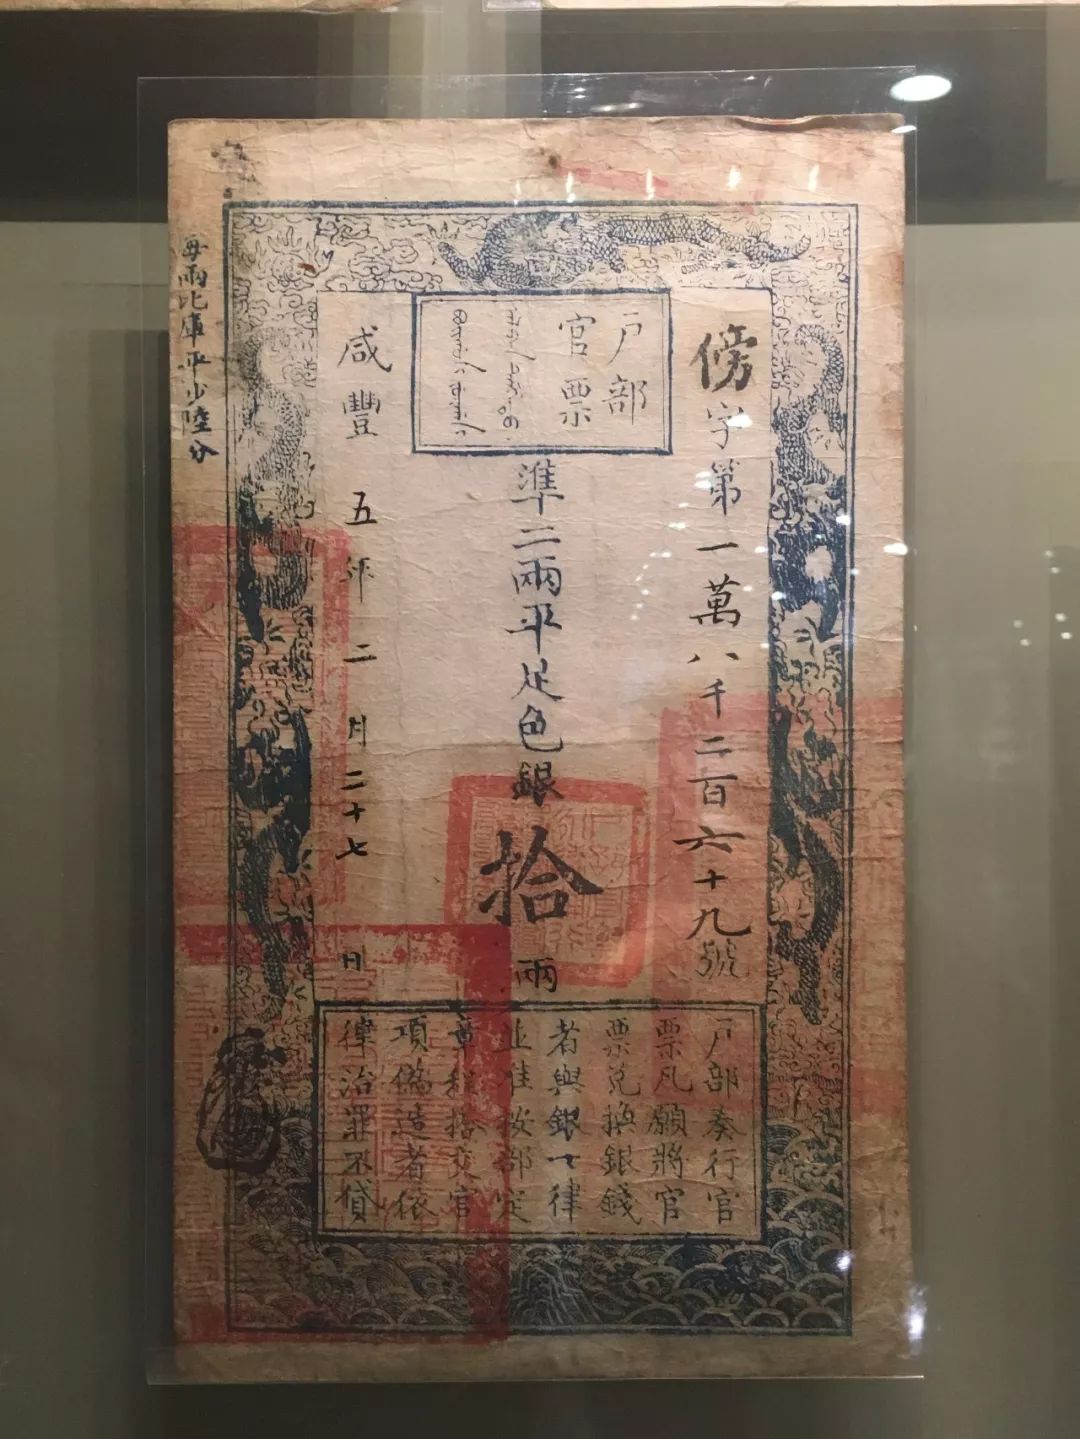 戶部
官票
傍字第一萬八千二百六十九號
準二兩平足色銀拾兩
咸豐五年二月二十七日
每兩比庫平少陸分
戶部奏行官
票凡願將官
票兌換銀錢
者與銀一律
並準按部定
章程搭交官
項偽造者依
律治罪不貸